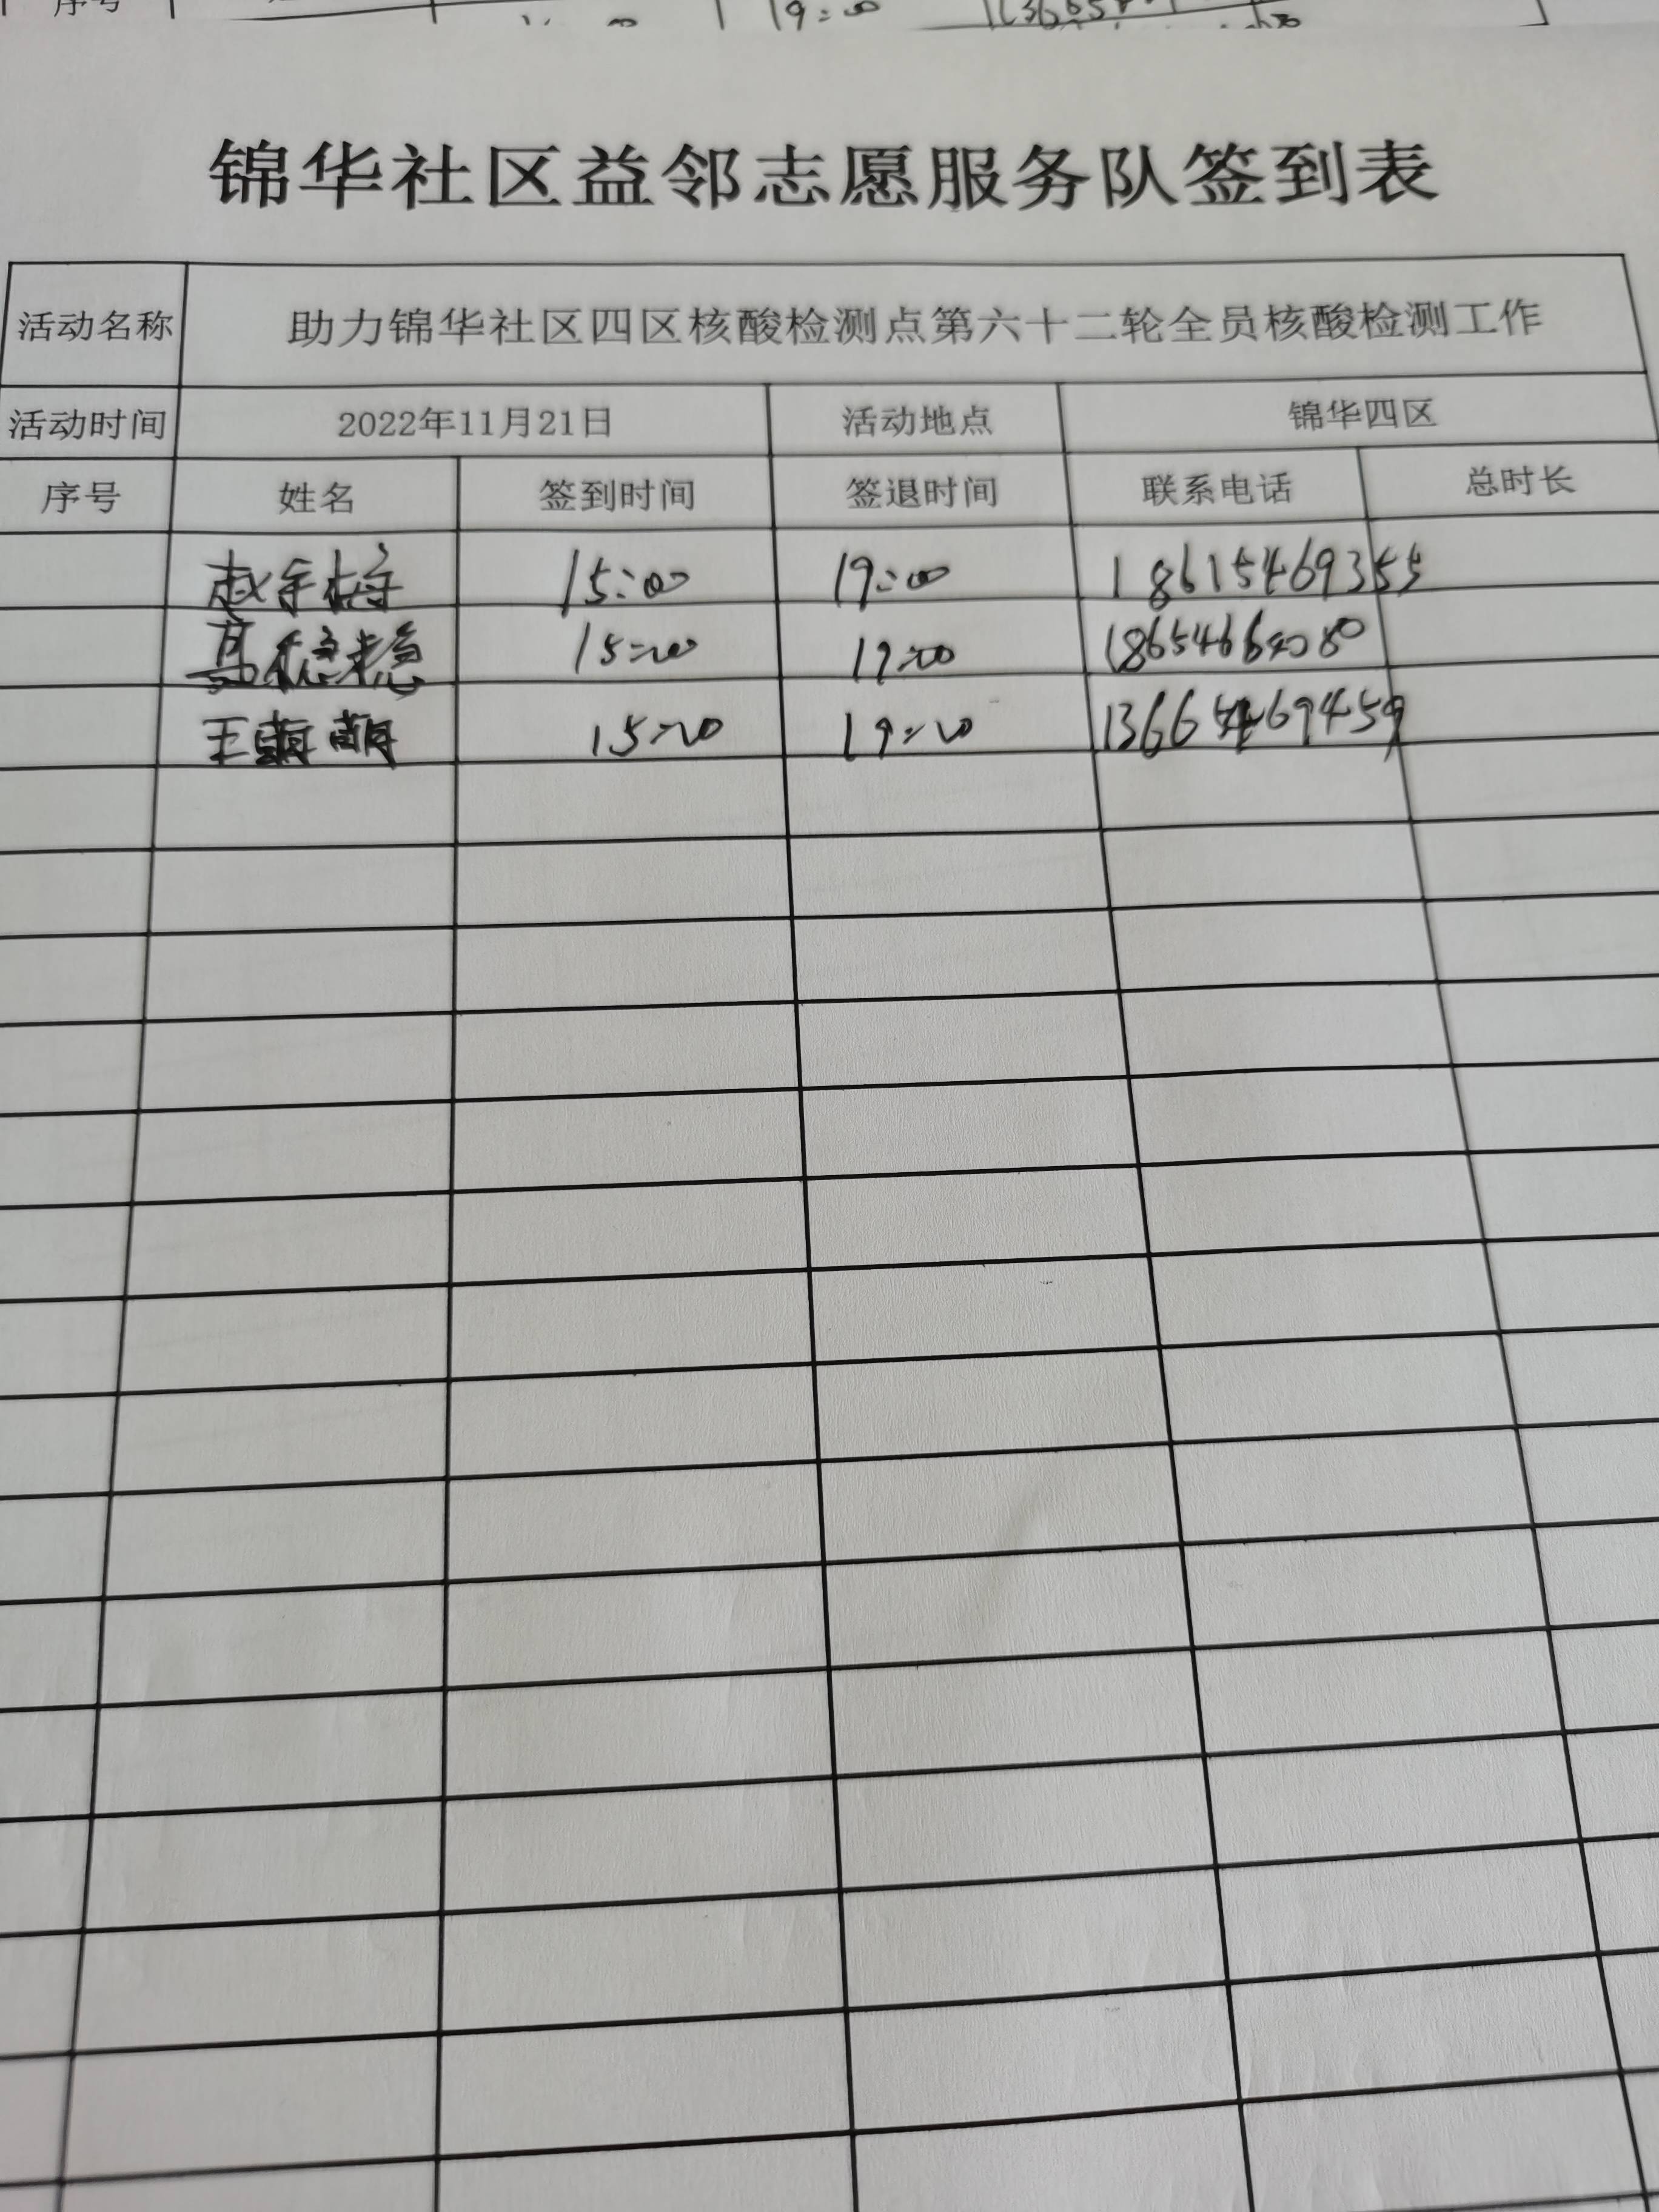 序号
19:00
锦华社区益邻志愿服务队签到表
活动名称 助力锦华社区四区核酸检测点第六十二轮全员核酸检测工作
活动时间 2022年11月21日 活动地点 锦华四区
序号 姓名 签到时间 签退时间 联系电话 总时长
赵 15:00 19:00 18615469355
高稳稳 15:00 19:00
王萌萌 15:00 19:00